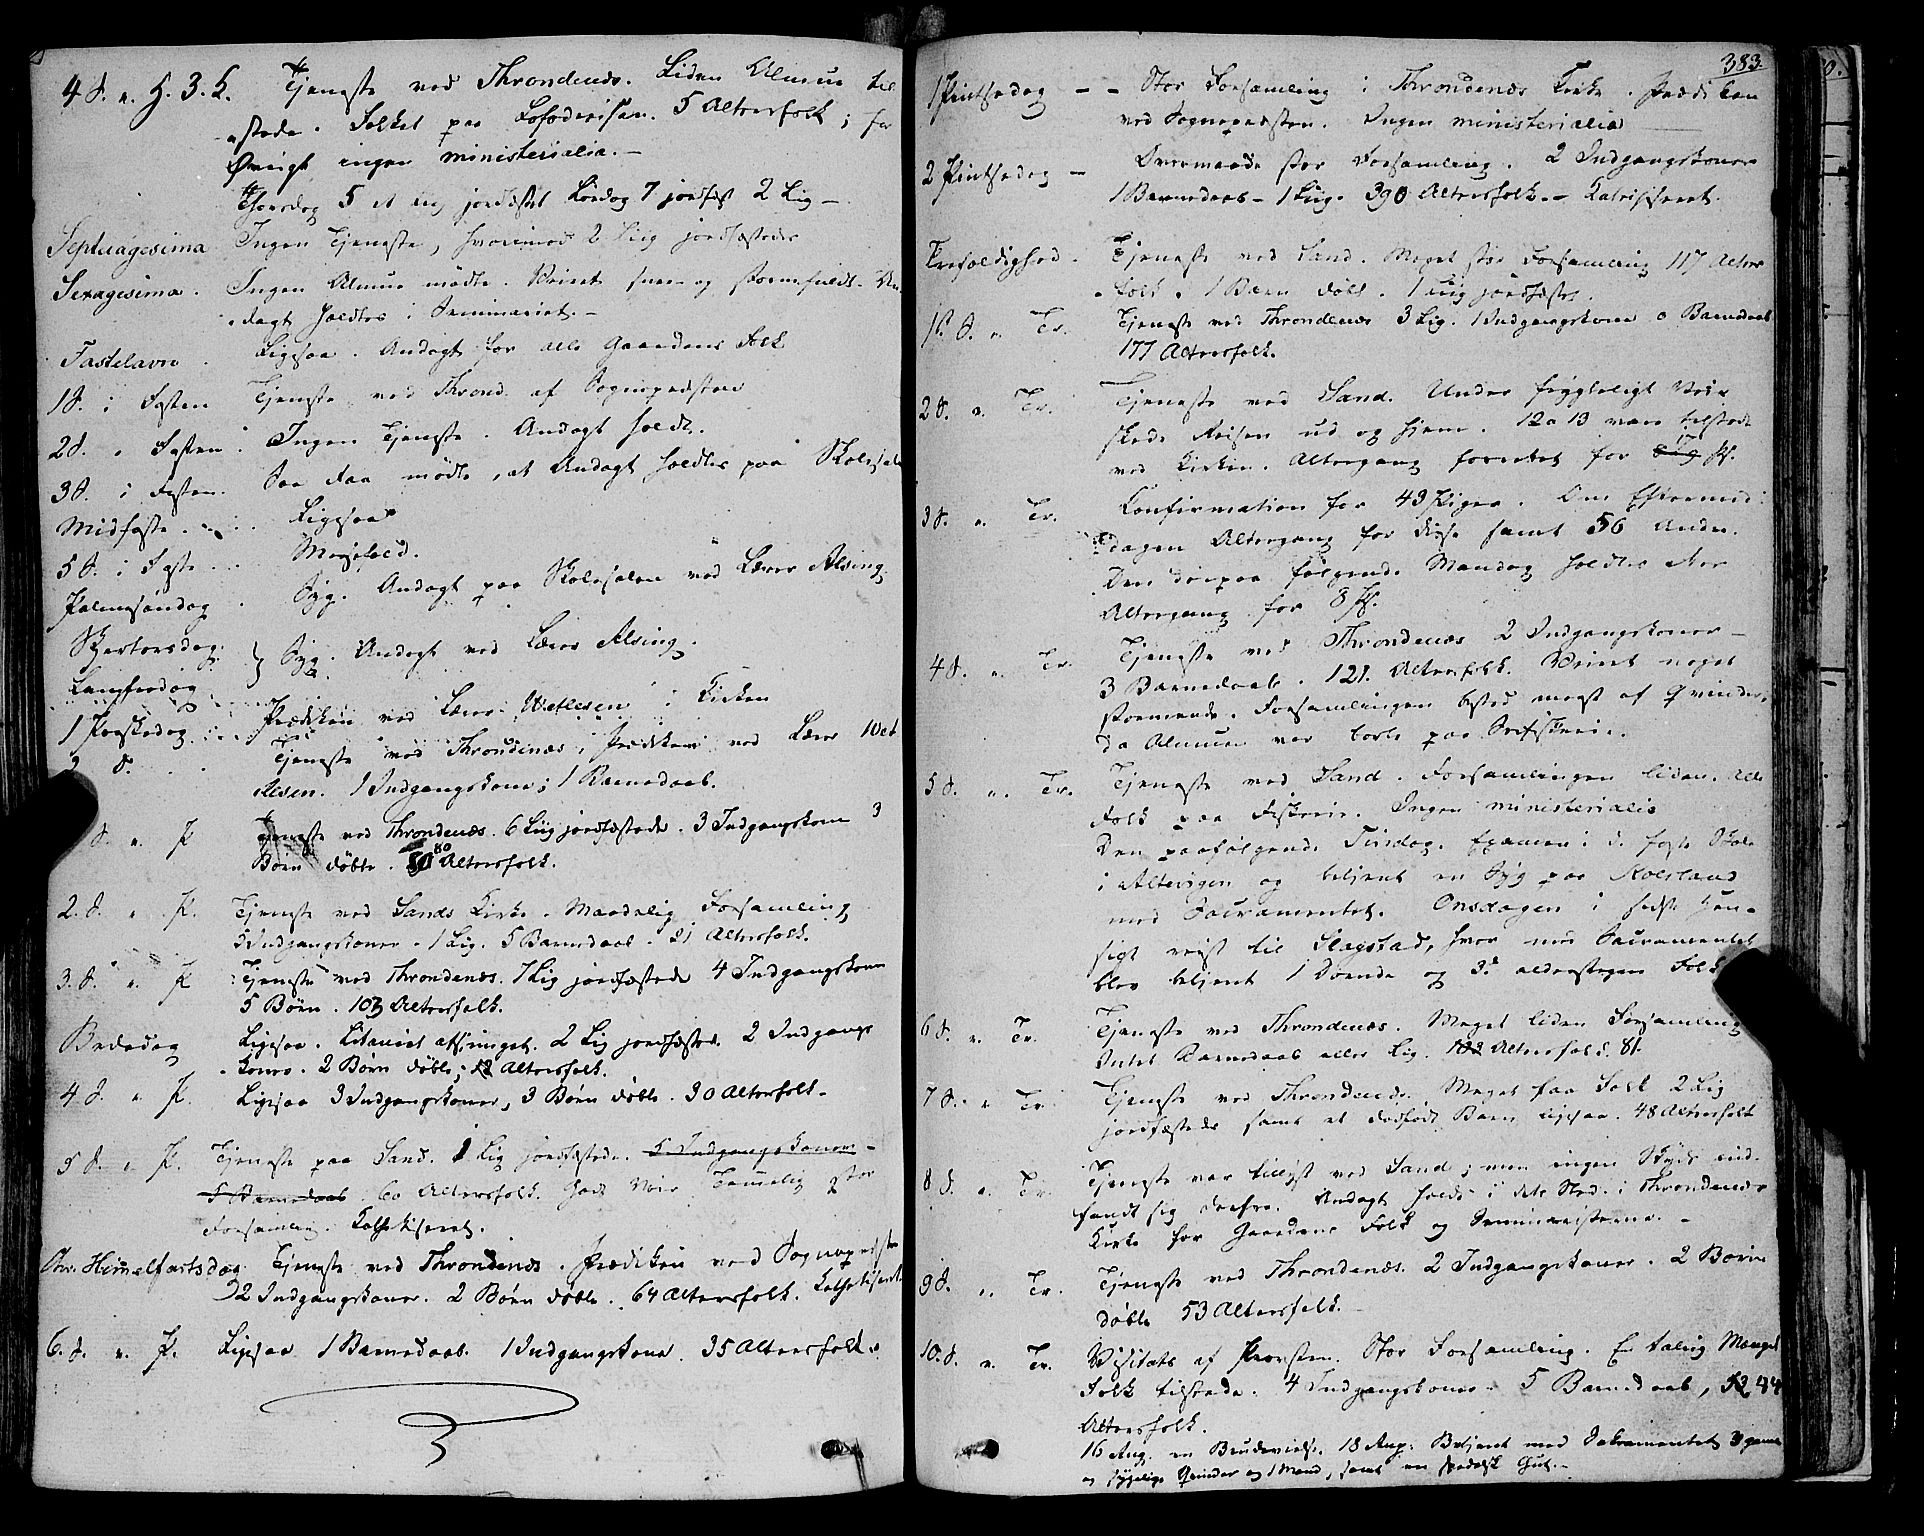 4 S. e. H. 3. K. Tjeneste ved Throndenæs. Liden Almue til
stede. Folket paa Lofodreisen. 5 Altersfolk; for
Øvrigt ingen ministerialia. —
Thorsdag 5 et Lig jordfæstet Lördag 7 jordfæst 2 Lig —
Septuagesima Ingen Tjeneste, hvorimod 2 Liig jordfæstedes
Sexagesima. Ingen Almue mödte. Veiret snee- og stormfuldt. An-
dagt holdtes i Seminariet. —
Fastelavn. Ligesaa. Andagt for alle Gaardens Folk
1 S. i Fasten Tjeneste ved Thrond. af Sognepræsten
2 S. " Fasten. Ingen Tjeneste. Andagt holdt.
3 S. i Fasten. Saa faa mödte, at Andagt holdtes paa Skolesalen
Midfaste. Ligesaa
5 S. i Faste Messefald.
Palmesöndag. Syg. Andagt paa Skolesalen ved Lærer Alsing.
Skjertorsdag.
Langfredag } Syg. Andagt ved Lærer Alsing.
1 Paaskedag Prædiken ved Lærer Wetlesen i Kirken
2 S. Tjeneste ved Throndenæs, Prædiken ved Lærer Wet
lesen. 1 Indgangskone; 1 Barnedaab.
S. e. P Tjeneste ved Throndenæs. 6 Liig jordfæstede. 3 Indgangskoner 3
Börn döbte. 80 Altersfolk.
2. S. e. P. Tjeneste ved Sands Kirke. Maadelig Forsamling
5 Indgangskoner. 1 Lig. 5 Barnedaab. 21 Altersfolk.
3. S. e. P Tjeneste ved Throndenæs. 1 Lig jordfæstede 4 Indgangskoner
5 Börn. 103 Altersfolk.
Bededag Ligesaa. Litaniet afsunget. 2 Lig jordfæstet. 2 Indgangs
koner. 2 Börn döbte; 12 Altersfolk.
4 S. e P. Ligesaa 3 Indgangskoner, 3 Börn döbte. 30 Altersfolk.
5 S. e P. Tjeneste paa Sand. 1 Lig jordfæstede. 5 Indgangskoner —
5 Barnedaab 60 Altersfolk. Godt Veir Temmelig stor
Forsamling. Kathekiseret.
Chr. Himmelfartsdag Tjeneste ved Throndenæs. Prædiken ved Sognepræsten
2 Indgangskoner. 2 Börn döbte. 64 Altersfolk. Kathekiseret
6. S. e. P. Ligesaa 1 Barnedaab. 1 Indgangskone. 35 Altersfolk.
383.
1 Pintsedag — Stor Forsamling i Throndenæs Kirke. Prædiken
ved Sognepræsten. Ingen ministerialia
2 Pintsedag — Overmaade stor Forsamling. 2 Indgangskoner
1 Barnedaab — 1 Liig. 390 Altersfolk. — Katekiseret.
Trefoldighed. Tjeneste ved Sand. Meget stor Forsamling 117 Alters
folk. 1 Barn döbt. 1 Liig jordfæstet.
1st. S. e. Tr. Tjeneste ved Throndenæs 3 Lig. 1 Indgangskone 0 Barnedaab
177 Altersfolk.
2 S. e. Tr. Tjeneste ved Sand. Under frygteligt Veir
skede Reisen ud og hjem. 12 a 13 vare tilstede
ved Kirken. Altergang forrettet for 17 st.
3 S. e. Tr. Confirmation for 43 Piger. Om Eftermid
dagen Altergang for disse samt 56 Andre.
Den derpaa følgende Mandag holdtes Ater
Altergang for 8 st.
4 S. e. Tr. Tjeneste ved Throndenæs 2 Indgangskoner —
3 Barnedaab. 121. Altersfolk. Veiret noget
stormende. Forsamlingen bestod mest af Qvinder,
da Almuen var borte paa Seifiskerie.
5 S. e. Tr. Tjeneste ved Sand. Forsamlingen liden. Alle
Folk paa Fiskerie. Ingen ministerialia
Den paafølgende Tirsdag. Examen i d. faste Skole
i Altevigen og betjent en Syg paa Rolsland
med Sacramentet. Onsdagen i sidste Hen-
sigt reist til Slagstad, hvor med Sacramentet
blev betjent 1 Döende og 3de alderstegen Folk
6 S. e. Tr. Tjeneste ved Throndenæs. Meget liden Forsamling
Intet Barnedaab eller Lig. 102 Altersfolk. 81.
7 S. e Tr. Tjeneste ved Throndenæs. Meget faa Folk 2 Lig
jordfæstede samt et dødfødt Barn ligesaa. 48 Altersfolk
8 S. e. Tr. Tjeneste var tillyst ved Sand; men ingen Skyds ind-
fandt sig derfra. Andagt holdt i dets Sted i Throndenæs
Kirke for Gaardens Folk og Seminaristerne. —
9 S. e. Tr. Tjeneste ved Throndenæs. 2 Indgangskoner. 2 Börn
döbte 53 Altersfolk.
10. S. e. Tr. Visitats af Provsten. Stor Forsamling. En talrig Mængde
Folk tilstede. 4 Indgangskoner. 5 Barnedaab, 12 44
Altersfolk.
16 Aug. en Brudevielse. 18 Aug: Betjent med Sakramentet 3 gamle
og sygelige Qvinder og 1 Mand, samt en spedalsk Gut. —